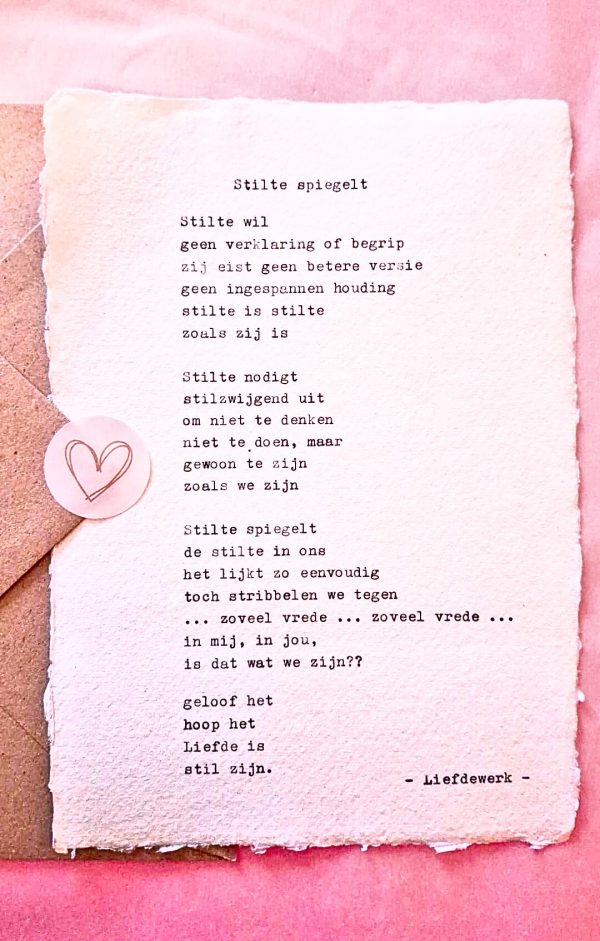 Stilte spiegelt
Stilte wil
geen verklaring of begrip
zij eist geen betere versie
geen ingespannen houding
stilte is stilte
zoals zij is
Stilte nodigt
stilzwijgend uit
om niet te denken
niet te doen, maar
gewoon te zijn
zoals we zijn
Stilte spiegelt
de stilte in ons
het lijkt zo eenvoudig
toch stribbelen we tegen
... zoveel vrede ... zoveel vrede ...
in mij, in jou,
is dat wat we zijn??
geloof het
hoop het
Liefde is
stil zijn.
- Liefdewerk -